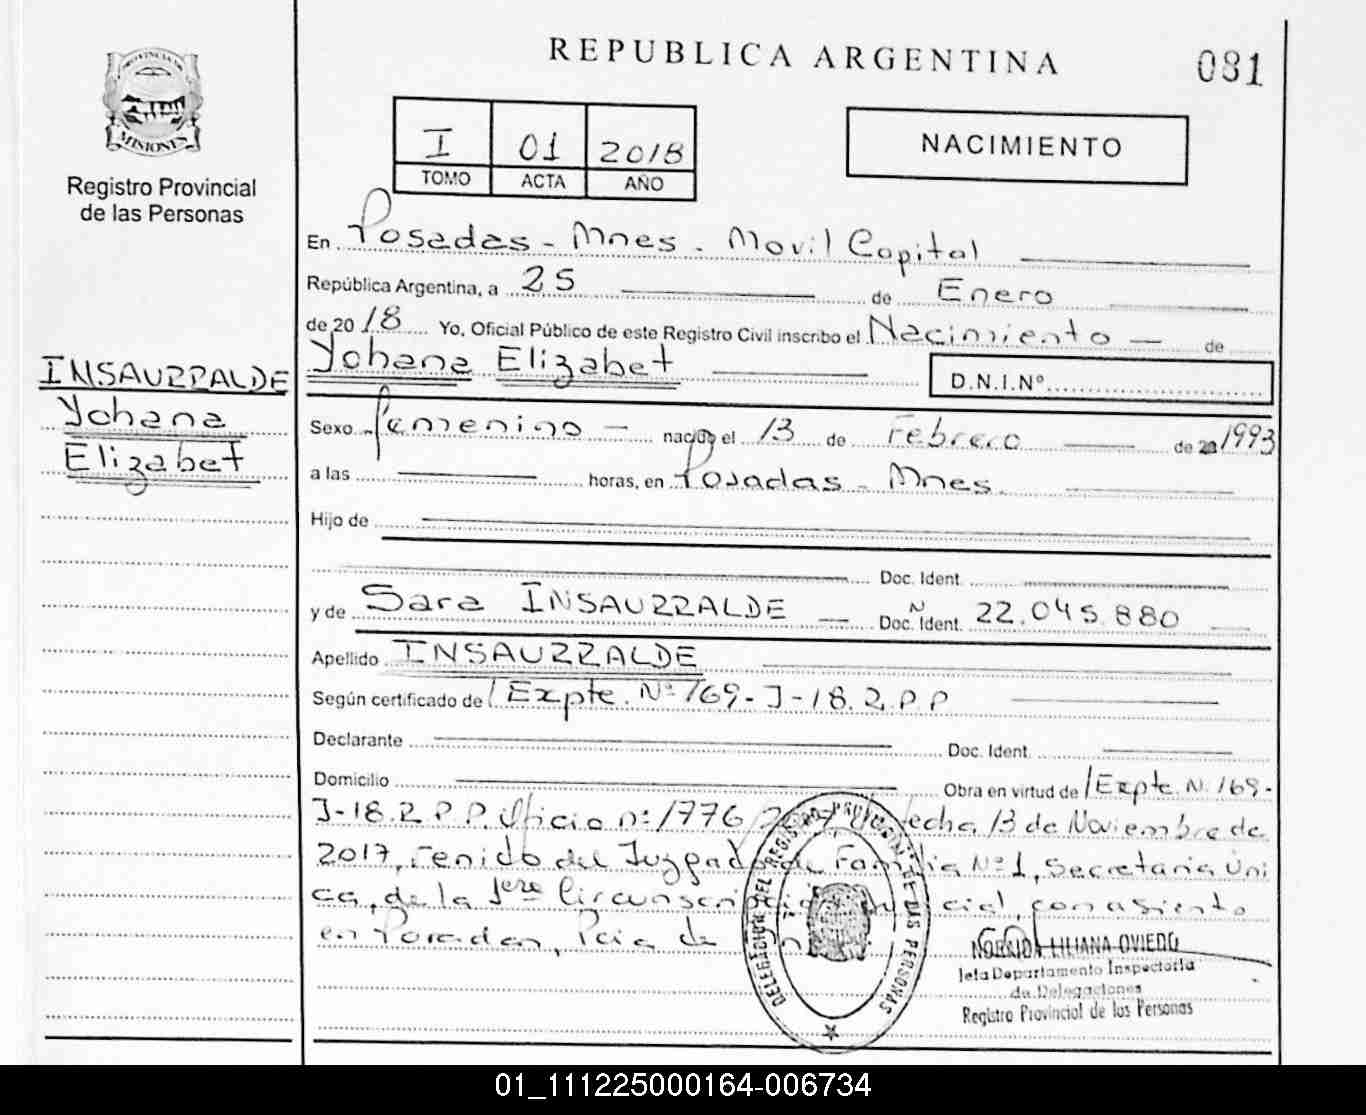 REPUBLICA ARGENTINA
081
PROVINCIA DE
MISIONES
Registro Provincial
de las Personas
I 01 2018
TOMO ACTA AÑO
NACIMIENTO
En Posadas - Mnes. Movil Capital
República Argentina, a 25 de Enero
de 2018 Yo, Oficial Público de este Registro Civil inscribo el Nacimiento de
Yohana Elizabet D.N.I.Nº
INSAURRALDE
Yohana
Elizabet
Sexo femenino nacido el 13 de Febrero de 1993
a las horas, en Posadas - Mnes.
Hijo de
Doc. Ident.
y de Sara INSAURRALDE Doc. Ident. 22.045.880
Apellido INSAURRALDE
Según certificado de Expte. Nº 169-J-18.R.P.P
Declarante Doc. Ident.
Domicilio Obra en virtud de Expte. N. 169-
J-18.R.P.P. Oficio nº 1776 fecha 13 de Noviembre de
2017, del Juzgado de Familia Nº 1, Secretaria Úni
ca, de la 1era Circunscripción cial, con asiento
en Posadas, Pcia de
DELEGACION DEL REGISTRO PROVINCIAL DE LAS PERSONAS
LILIANA OVIEDO
Jefa Departamento Inspectoría
de Delegaciones
Registro Provincial de las Personas
01_111225000164-006734